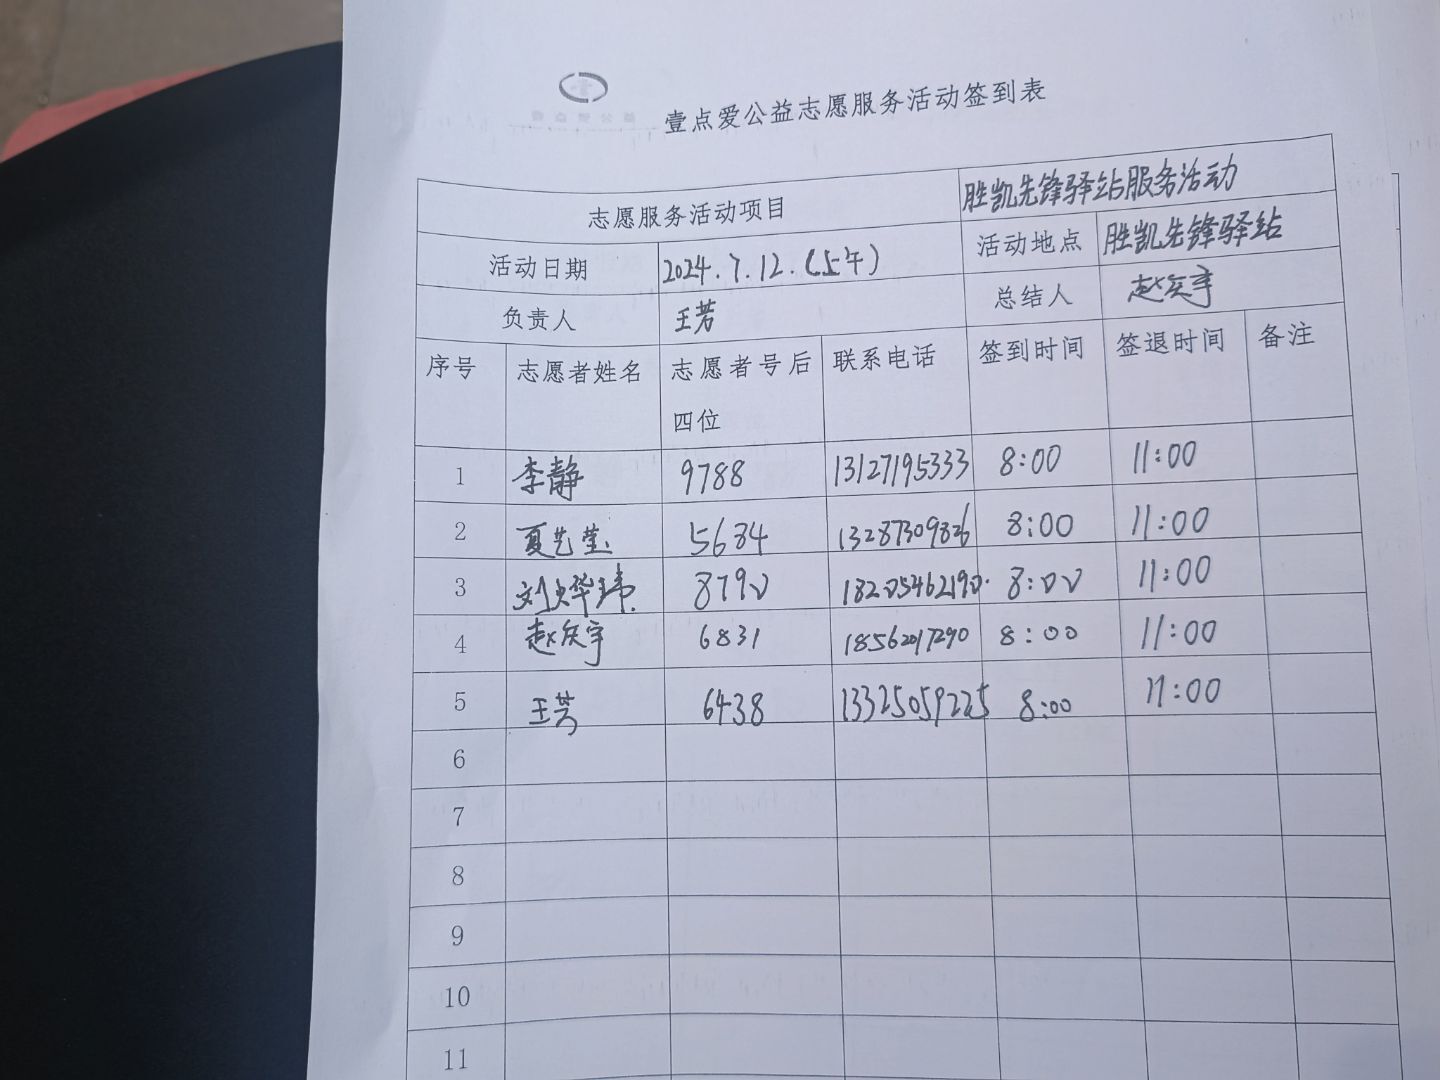 壹点爱公益志愿服务活动签到表
志愿服务活动项目 胜凯先锋驿站服务活动
活动日期 2024.7.12.(上午) 活动地点 胜凯先锋驿站
负责人 王芳 总结人 赵庆宇
序号 志愿者姓名 志愿者号后四位 联系电话 签到时间 签退时间 备注
1 李静 9788 13127195333 8:00 11:00
2 夏艺莹 5684 13287309826 8:00 11:00
3 刘烨玮 8790 18205462190 8:00 11:00
4 赵庆宇 6831 18562017290 8:00 11:00
5 王芳 6438 13325059225 8:00 11:00
6
7
8
9
10
11